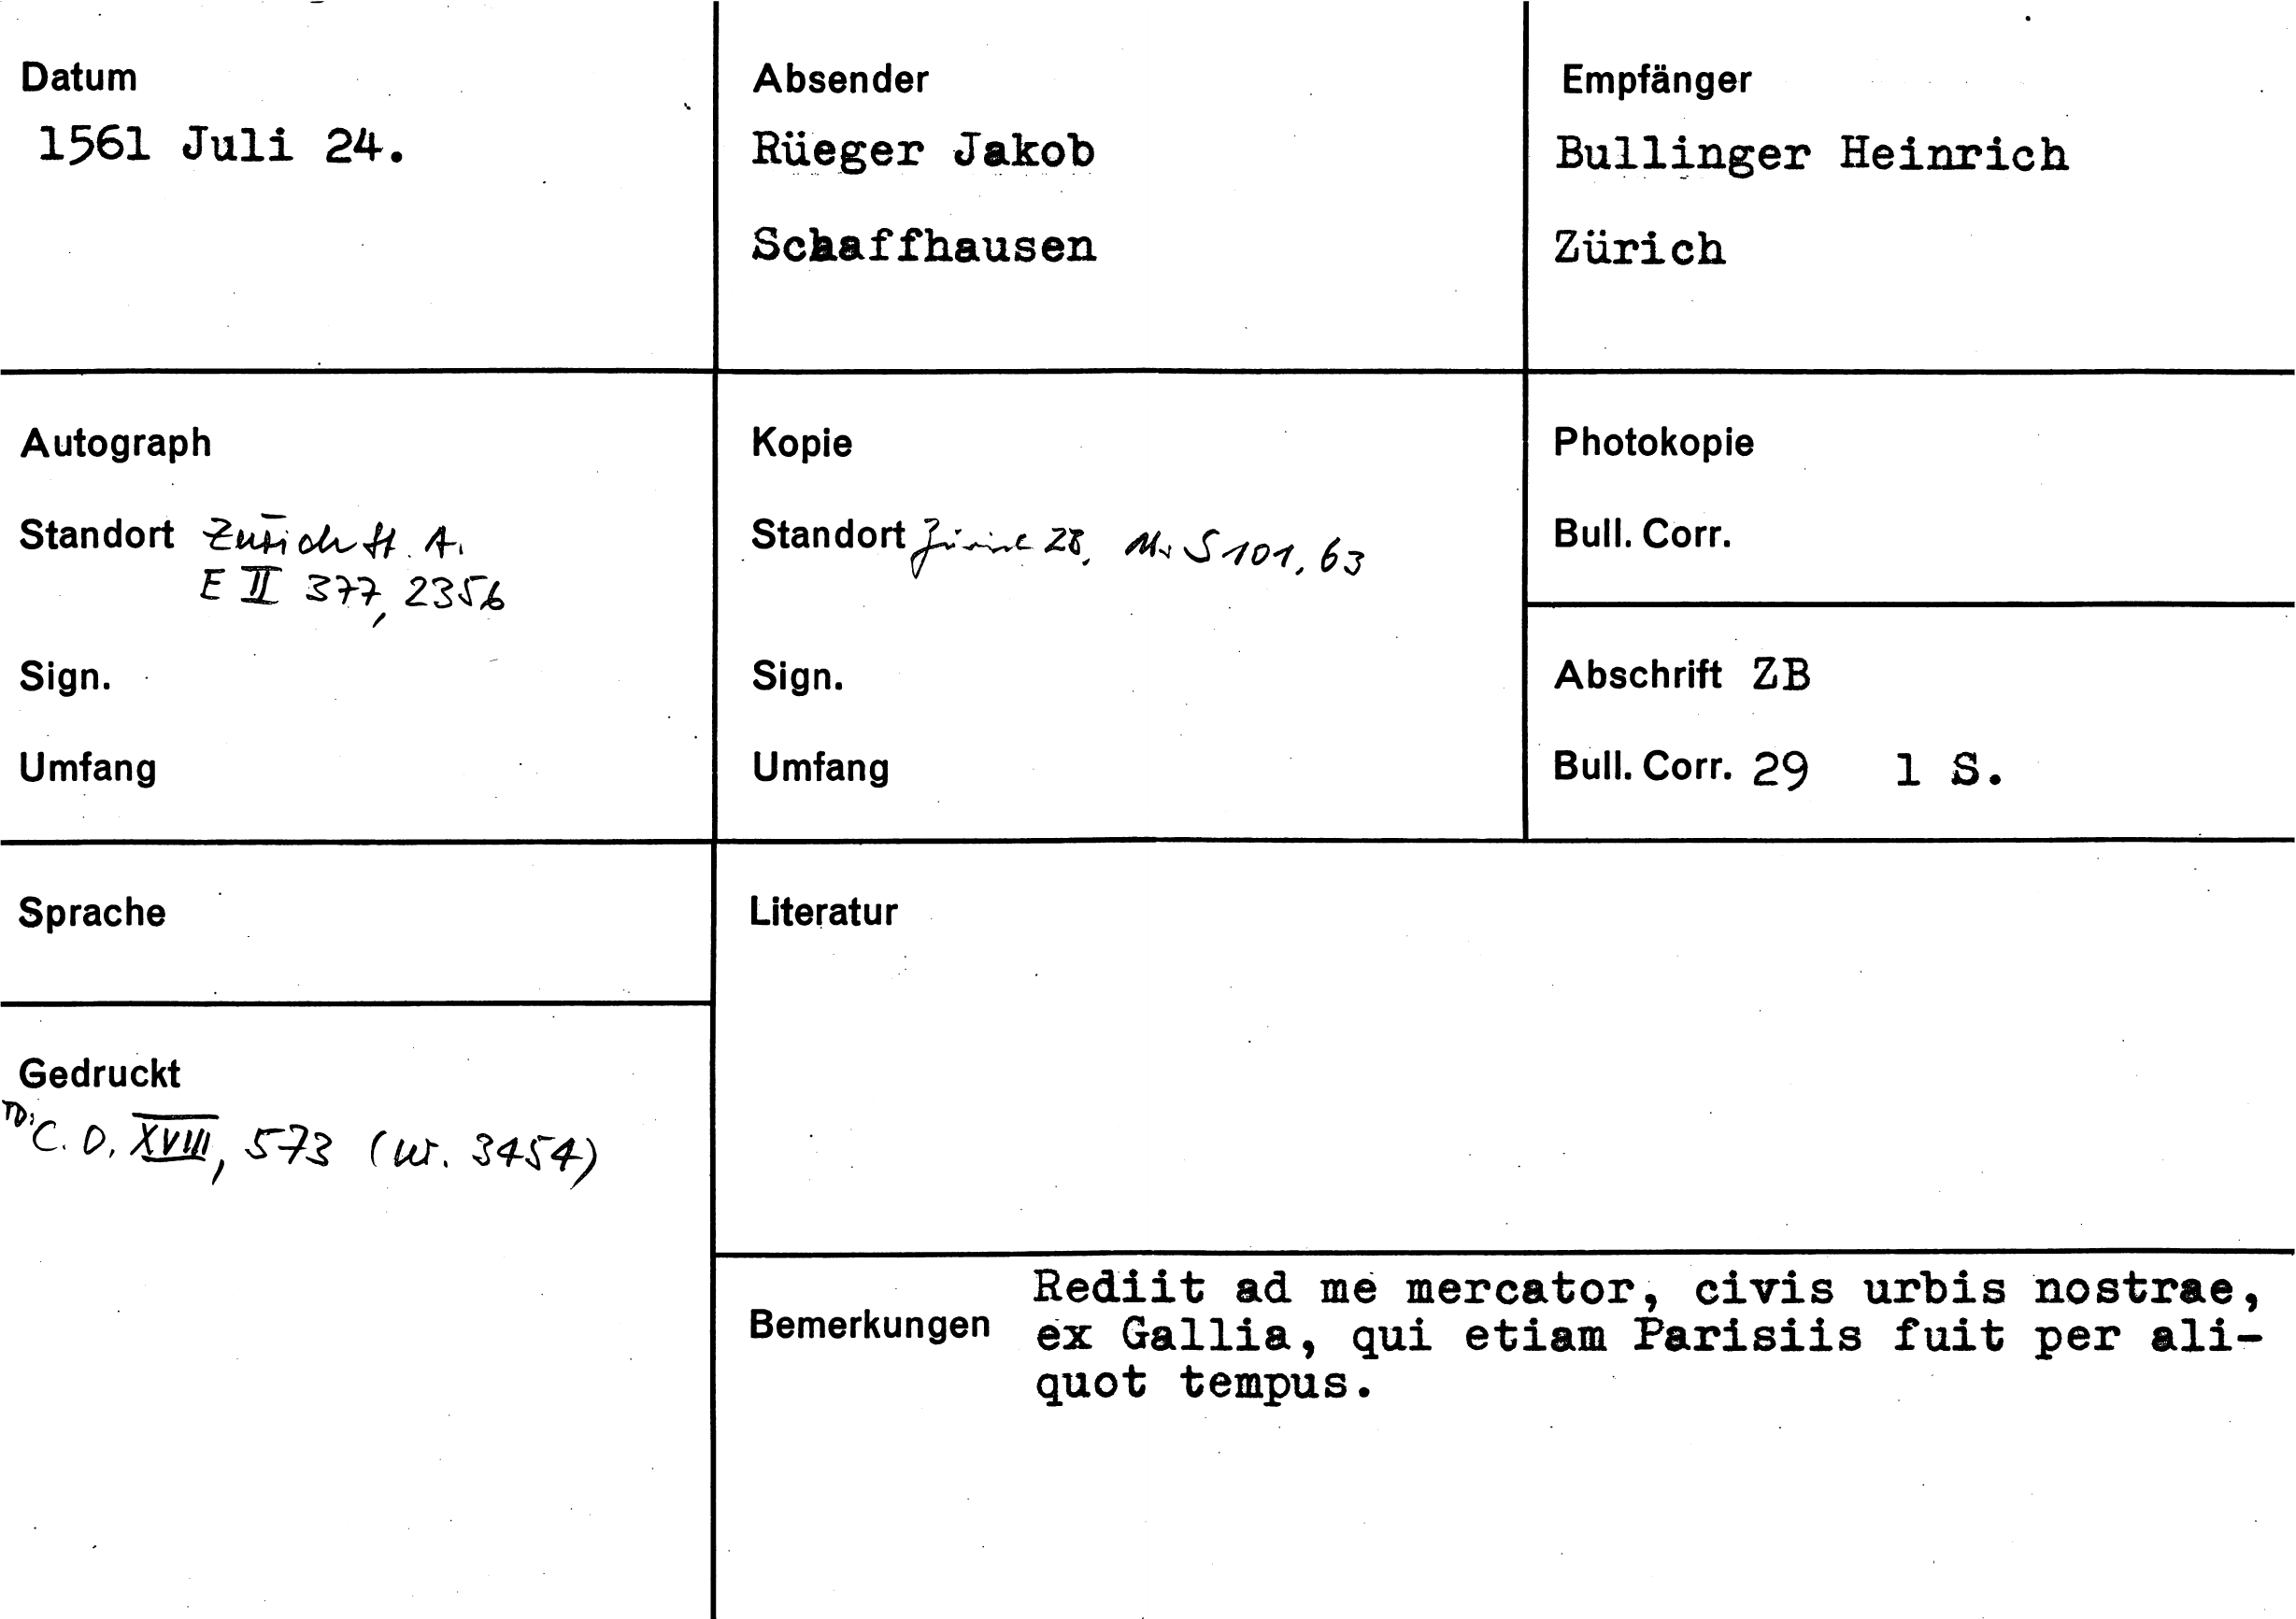 Datum
1561 Juli 24.
Absender
Rüeger Jakob
Schaffhausen
Empfänger
Bullinger Heinrich
Zürich
Autograph
Standort Zürich St. A.
E II 377, 2356
Sign.
Umfang
Kopie
Standort Zürich ZB, Ms S 101, 63
Sign.
Umfang
Photokopie
Bull. Corr.
Abschrift ZB
Bull. Corr. 29 1 S.
Sprache
Gedruckt
C. O. XVIII, 573 (Nr. 3454)
Literatur
Bemerkungen
Rediit ad me mercator, civis urbis nostrae,
ex Gallia, qui etiam Parisiis fuit per ali-
quot tempus.